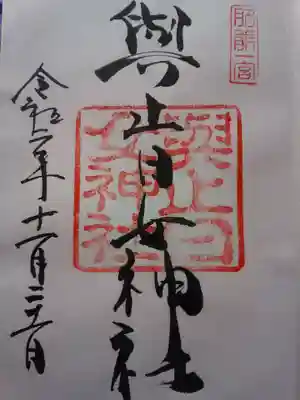 肥前一宮
與止日女神社
與止日女神社
令和二年十一月二十二日